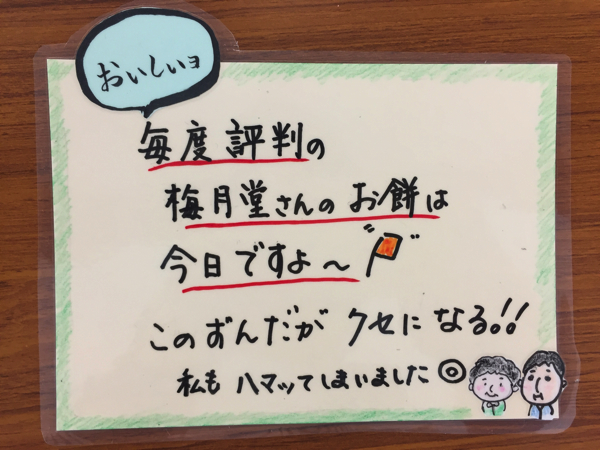 おいしいョ
毎度評判の
梅月堂さんのお餅は
今日ですよ〜
このずんだがクセになる。!!
私もハマッてしまいました◎